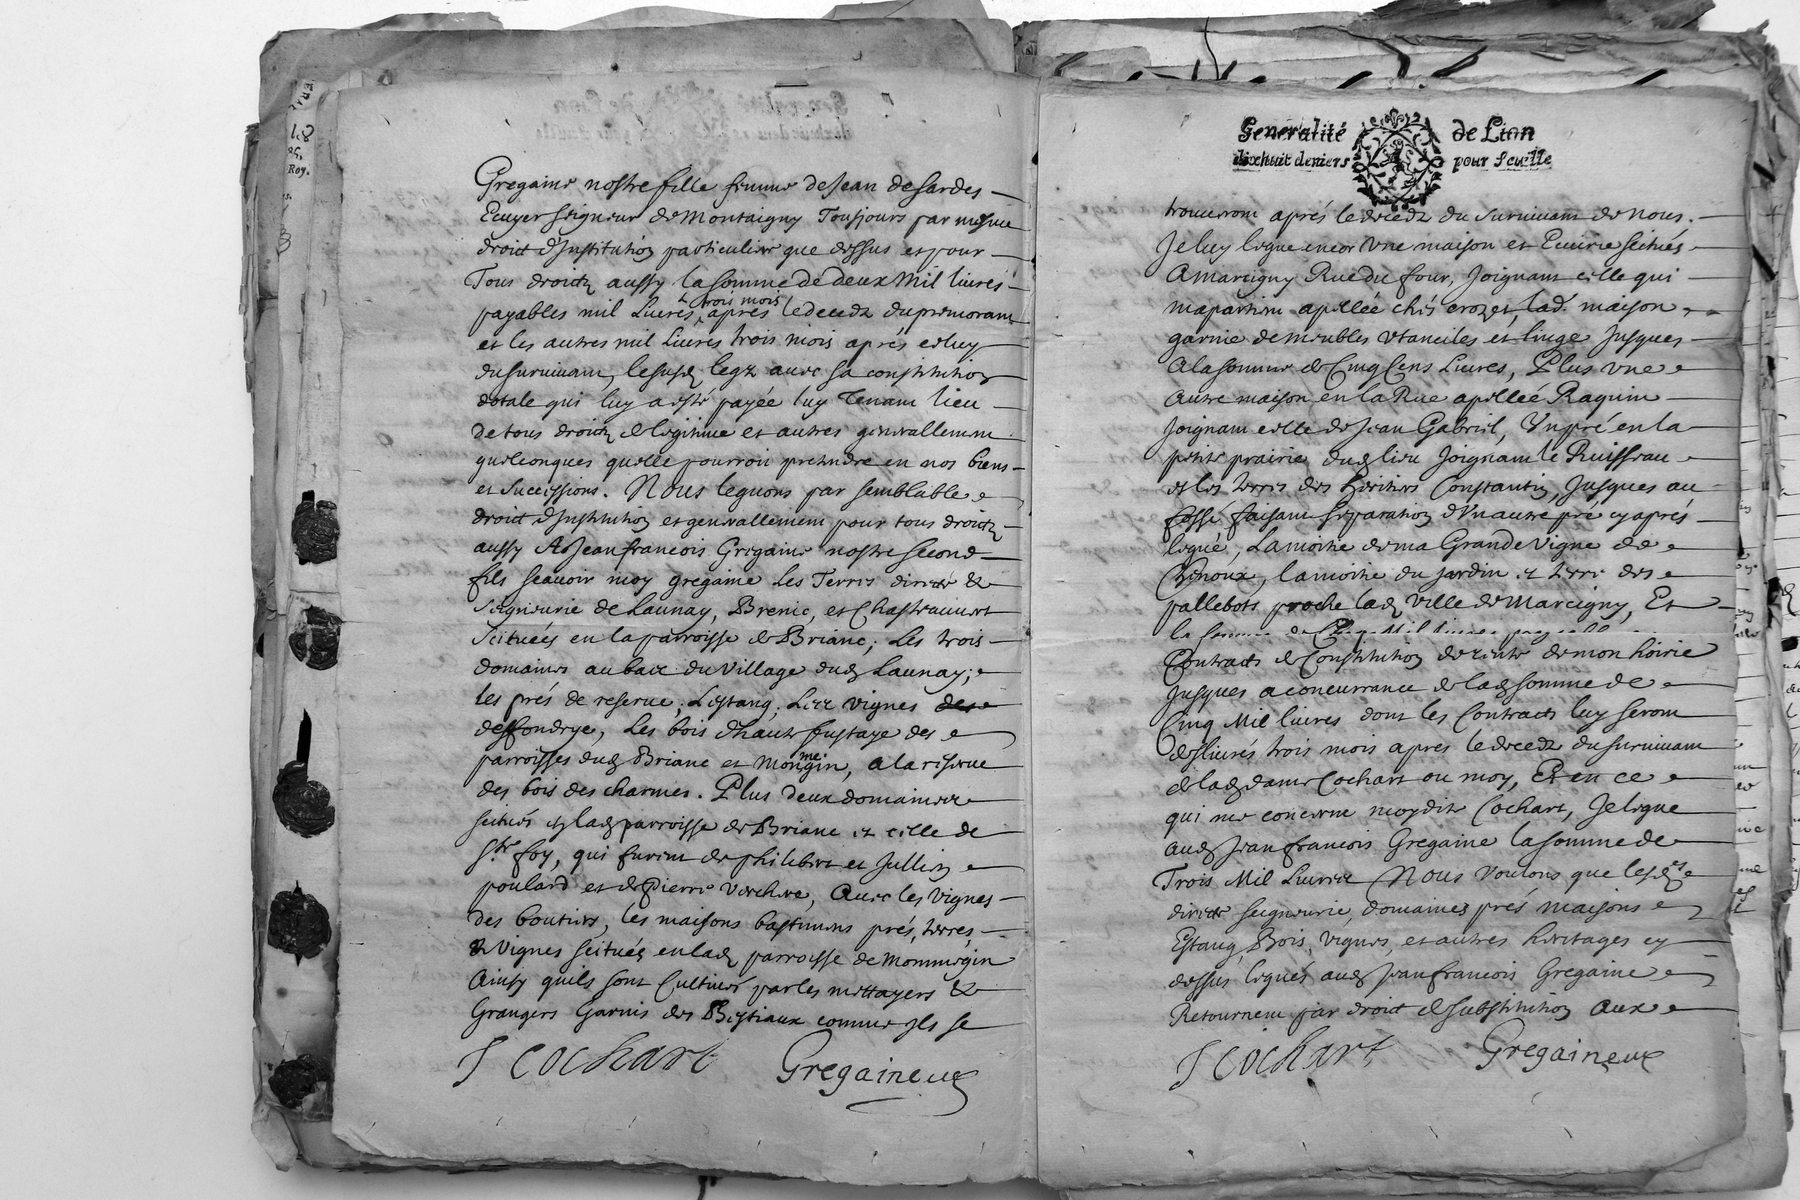 Gregaine nostre fille femme de Jean de Sardes
Ecuyer seigneur de Montaigny Tousjours par mesme
droict d'Institution particuliere que dessus et pour
Tous droictz aussy la somme de deux Mil livres
trois mois
payables mil Livres apres le decedz du premourant
et les autres mil Livres trois mois aprés celuy
du survivant, lesusd. legz avec sa constitution
dotale qui luy a esté payée luy Tenant lieu
de tous droictz de legitime et autres generallement
quelconques quelle pourroit pretendre en nos biens
et successions. Nous leguons par semblable
droict d'Institution et generallement pour tous droictz
aussy A Jean francois Gregaine nostre second
fils scavoir moy gregaine Les Terres directe &
seigneurie de Launay, Brenie, et Chastenuert
scituées en la parroisse de Briane; Les trois
domaines au bace du Village dud. Launay;
les prés de reserve, L'estang, Les vignes
desfondrye, les bois d'hautr fustaye des
parroisses dud. Briane et monmegin, a la reserve
des bois des charmes. Plus deux domaines
scitués en lad. parroisse de Briane et celle de
Ste foy, qui furent de philibert et Jullien
poulard et de Pierre Verchere, Avec les Vignes
des boutiers, les maisons bastimens prés, terres,
& Vignes scitués en lad. parroisse de Mommegin
Ainsy quils sont Cultivés par les mettayers &
Grangers Garnis des Bestiaux comme Ils se
J Cochart Gregaine
Generalité de Lion
dixhuit deniers pour feuille
trouveront aprés le decedz du survivant de nous.
Je luy legue encor Une maison et Ecuirie scitués
A Marcigny Rue du four, Joignant celle qui
m'apartient apellée chés crozet, lad. maison
garnie de meubles Utanciles et linge Jusques
A la somme de Cinq Cens Livres, Plus Une
Autre maison en la Rue apellée Raquin
Joignant celle de Jean Gabriel, Un pré en la
petite prairie dud. lieu Joignant le Ruisseau
et les terres des heritiers Constantin, Jusques au
fossé faisant separation d'Un autre pré cy aprés
legué, La moitié de ma Grande Vigne de
Chenoux, la moitié du Jardin et terre des
pallebots proche lad. Ville de Marcigny, Et
la somme de Cinq Mil livres
Contracts de Constitution de rente de mon hoirie
Jusques a concurrance de lad. somme de
Cinq Mil livres dont les Contracts luy seront
deslivrés trois mois apres le decedz du survivant
de lad. dame Cochart ou moy, Et en ce
qui me concerne moydite Cochart, Je legue
aud. Jean francois Gregaine la somme de
Trois Mil Livres Nous Voulons que lesd.
directe seigneurie, domaines prés maisons
Estang, Bois, vignes, et autres heritages cy
dessus legués aud. Jean francois Gregaine
Retournent par droict de substitution Aux
J Cochart Gregaine